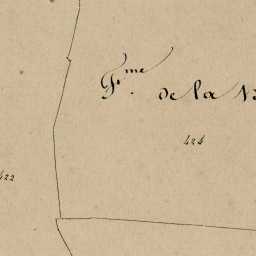 F.me de la
424
422